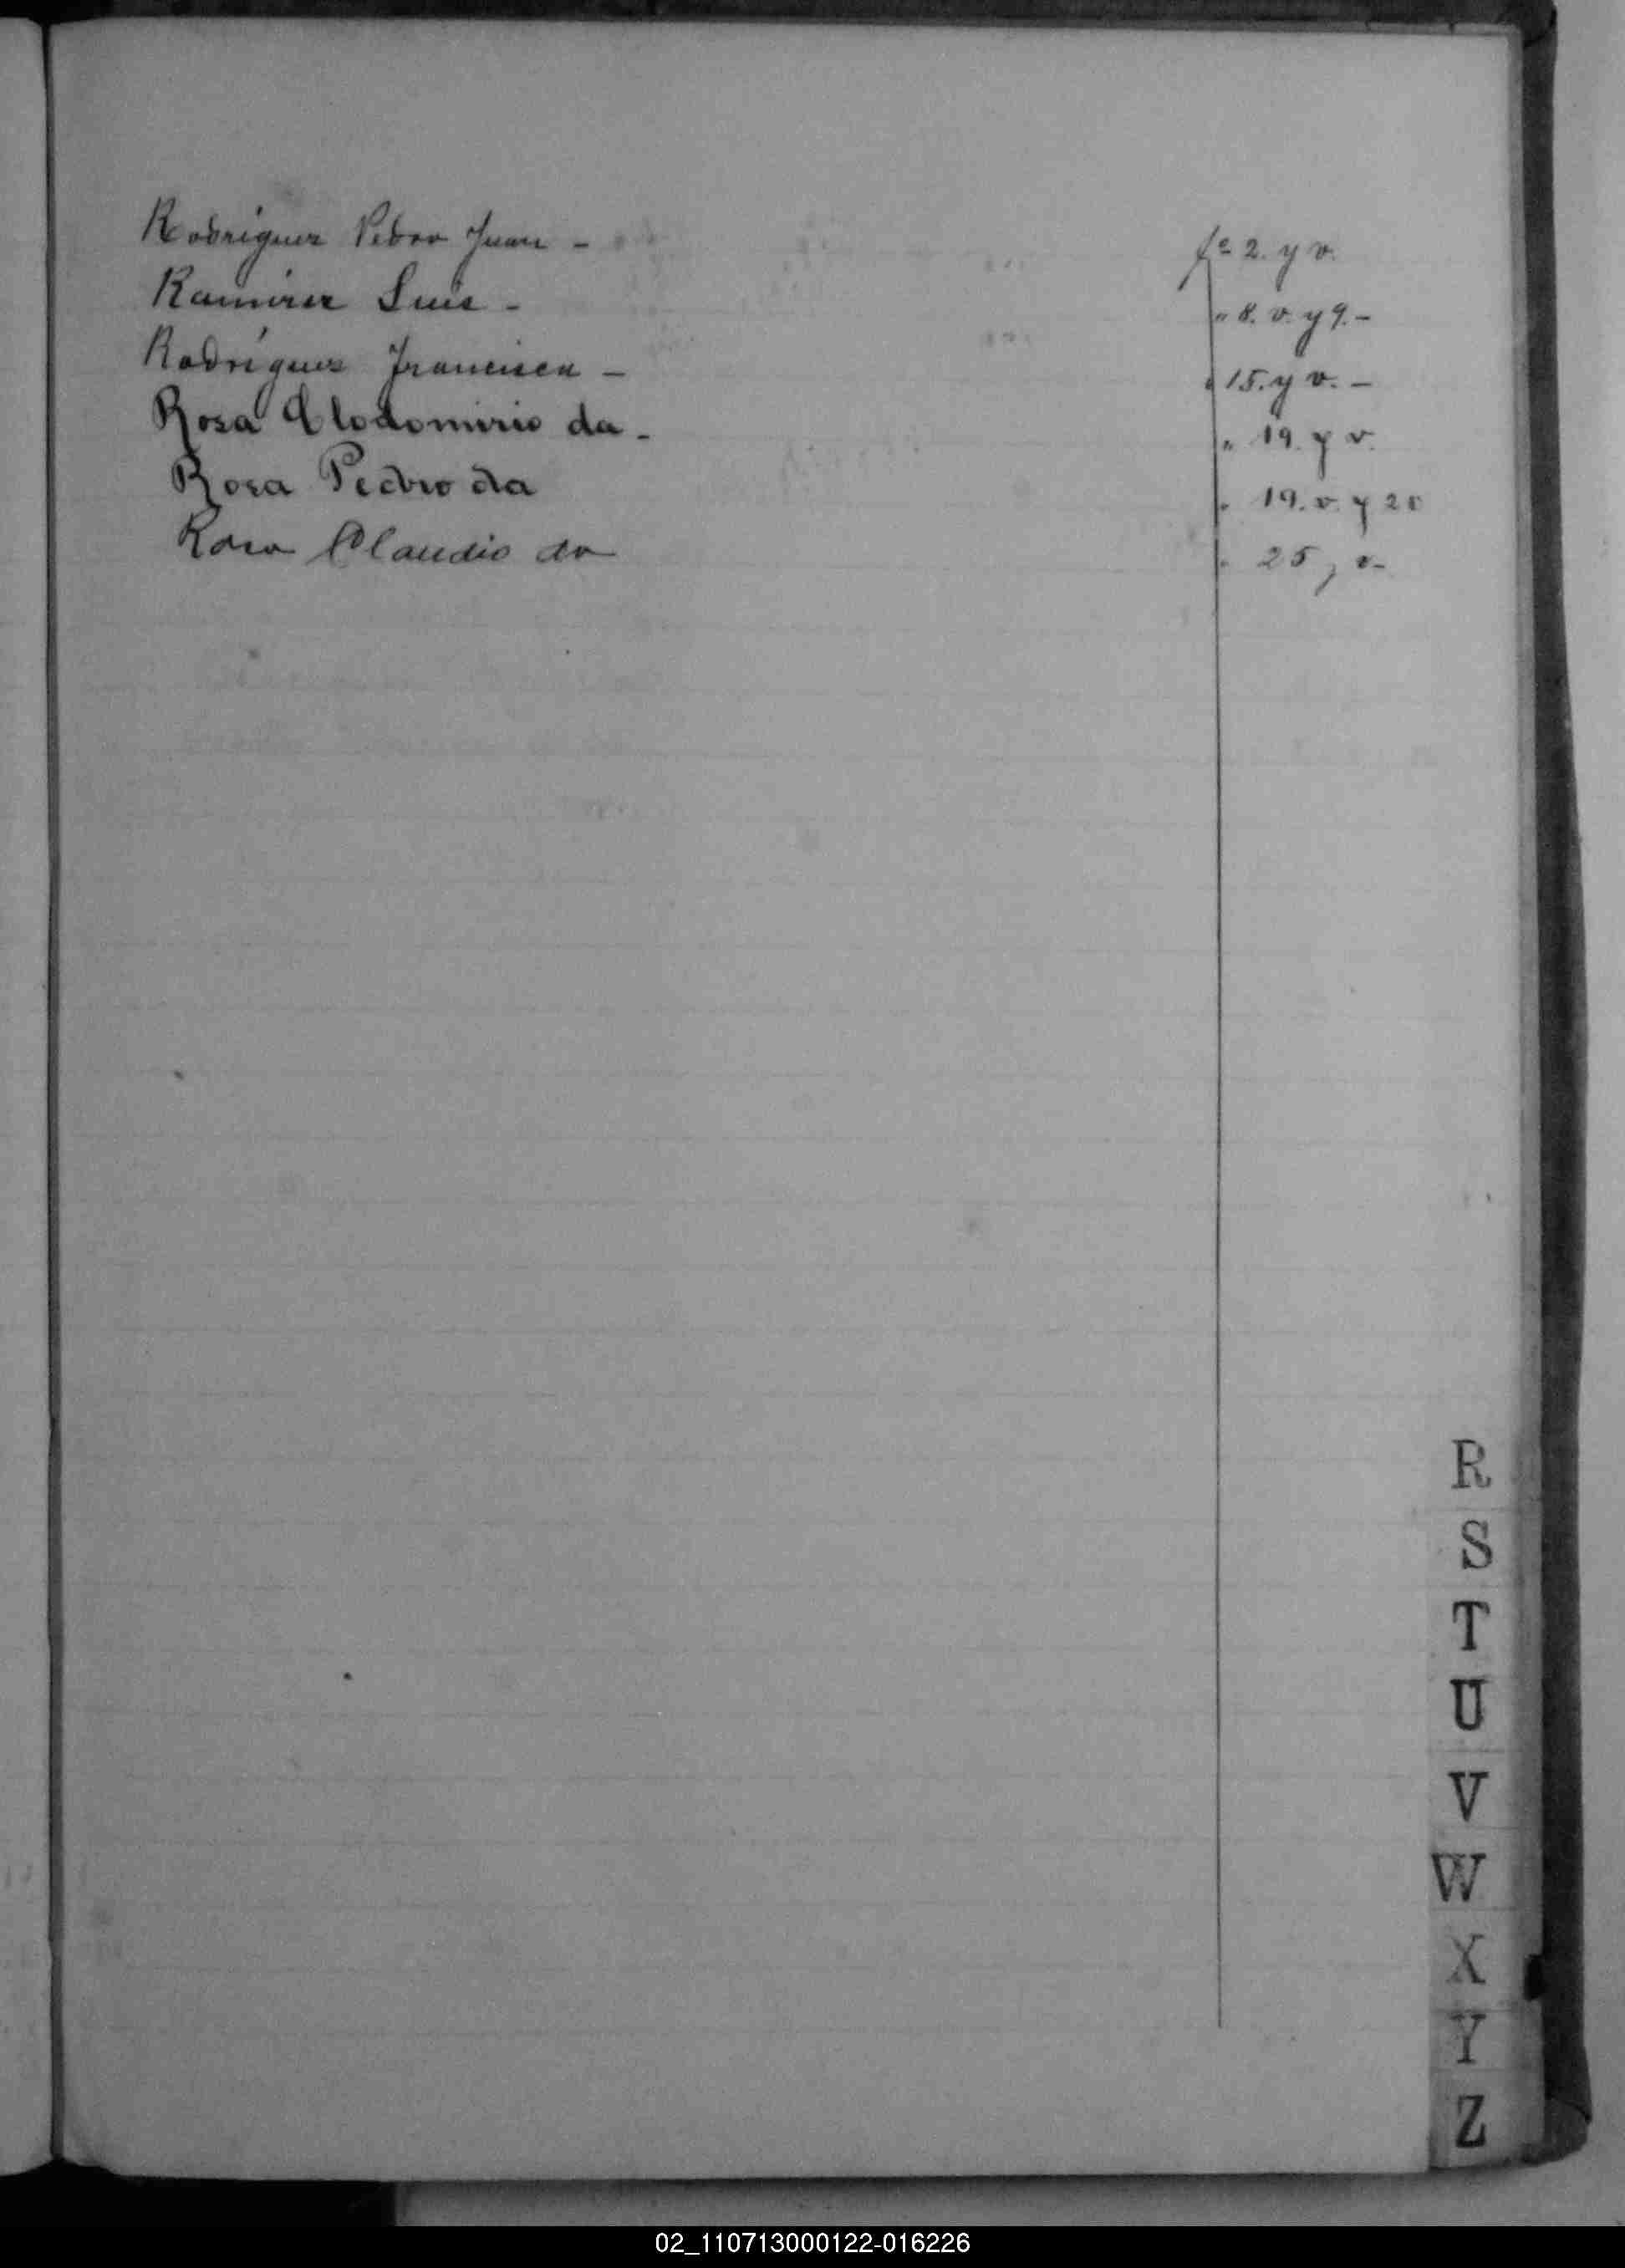 Rodríguez Pedro Juan - fo 2. y v.
Ramirez Luis - " 8. v. y 9. -
Rodríguez Francisca - " 15. y v. -
Rosa Clodomirio da - " 19. y v.
Rosa Pedro da " 19. v. y 20
Rosa Claudio da " 25 y v -
R
S
T
U
V
W
X
Y
Z
02_110713000122-016226